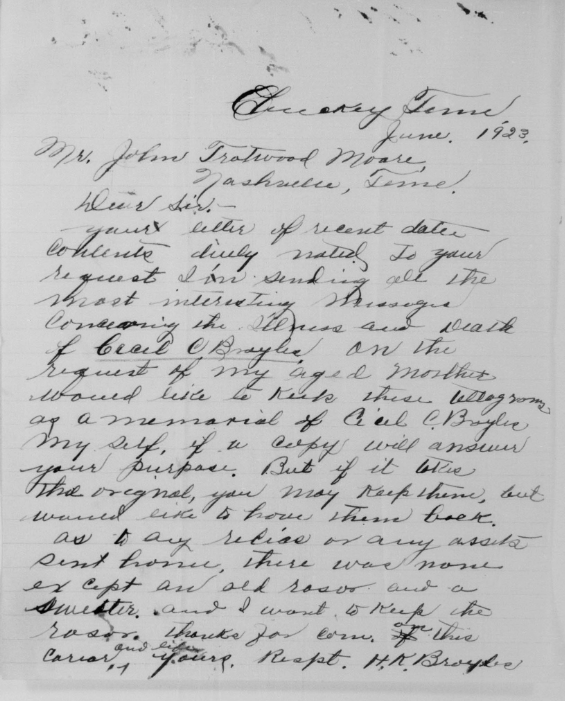 Chuckey Tenn
June. 1923.
Mr. John Trotwood Moore,
Nashville, Tenn.
Dear Sir.-
your letter of recent date
contents duly noted, to your
request I'm sending all the
most interesting messages
concerning the Illness and Death
of Cecil C Broyles, on the
request of my aged Mother
would like to Keek these telegrams
as a memorial of Cecil C. Broyles
my self, if a copy will answer
your purpose. But if it takes
the orignal, you may keep them, but
would like to have them back.
as to any relics or any assets
sent home, there was none
except an old rasor and a
Sweater. and I want to Keep the
rasor. thanks for com. on this
and
yours. Respt. H.K. Broyles